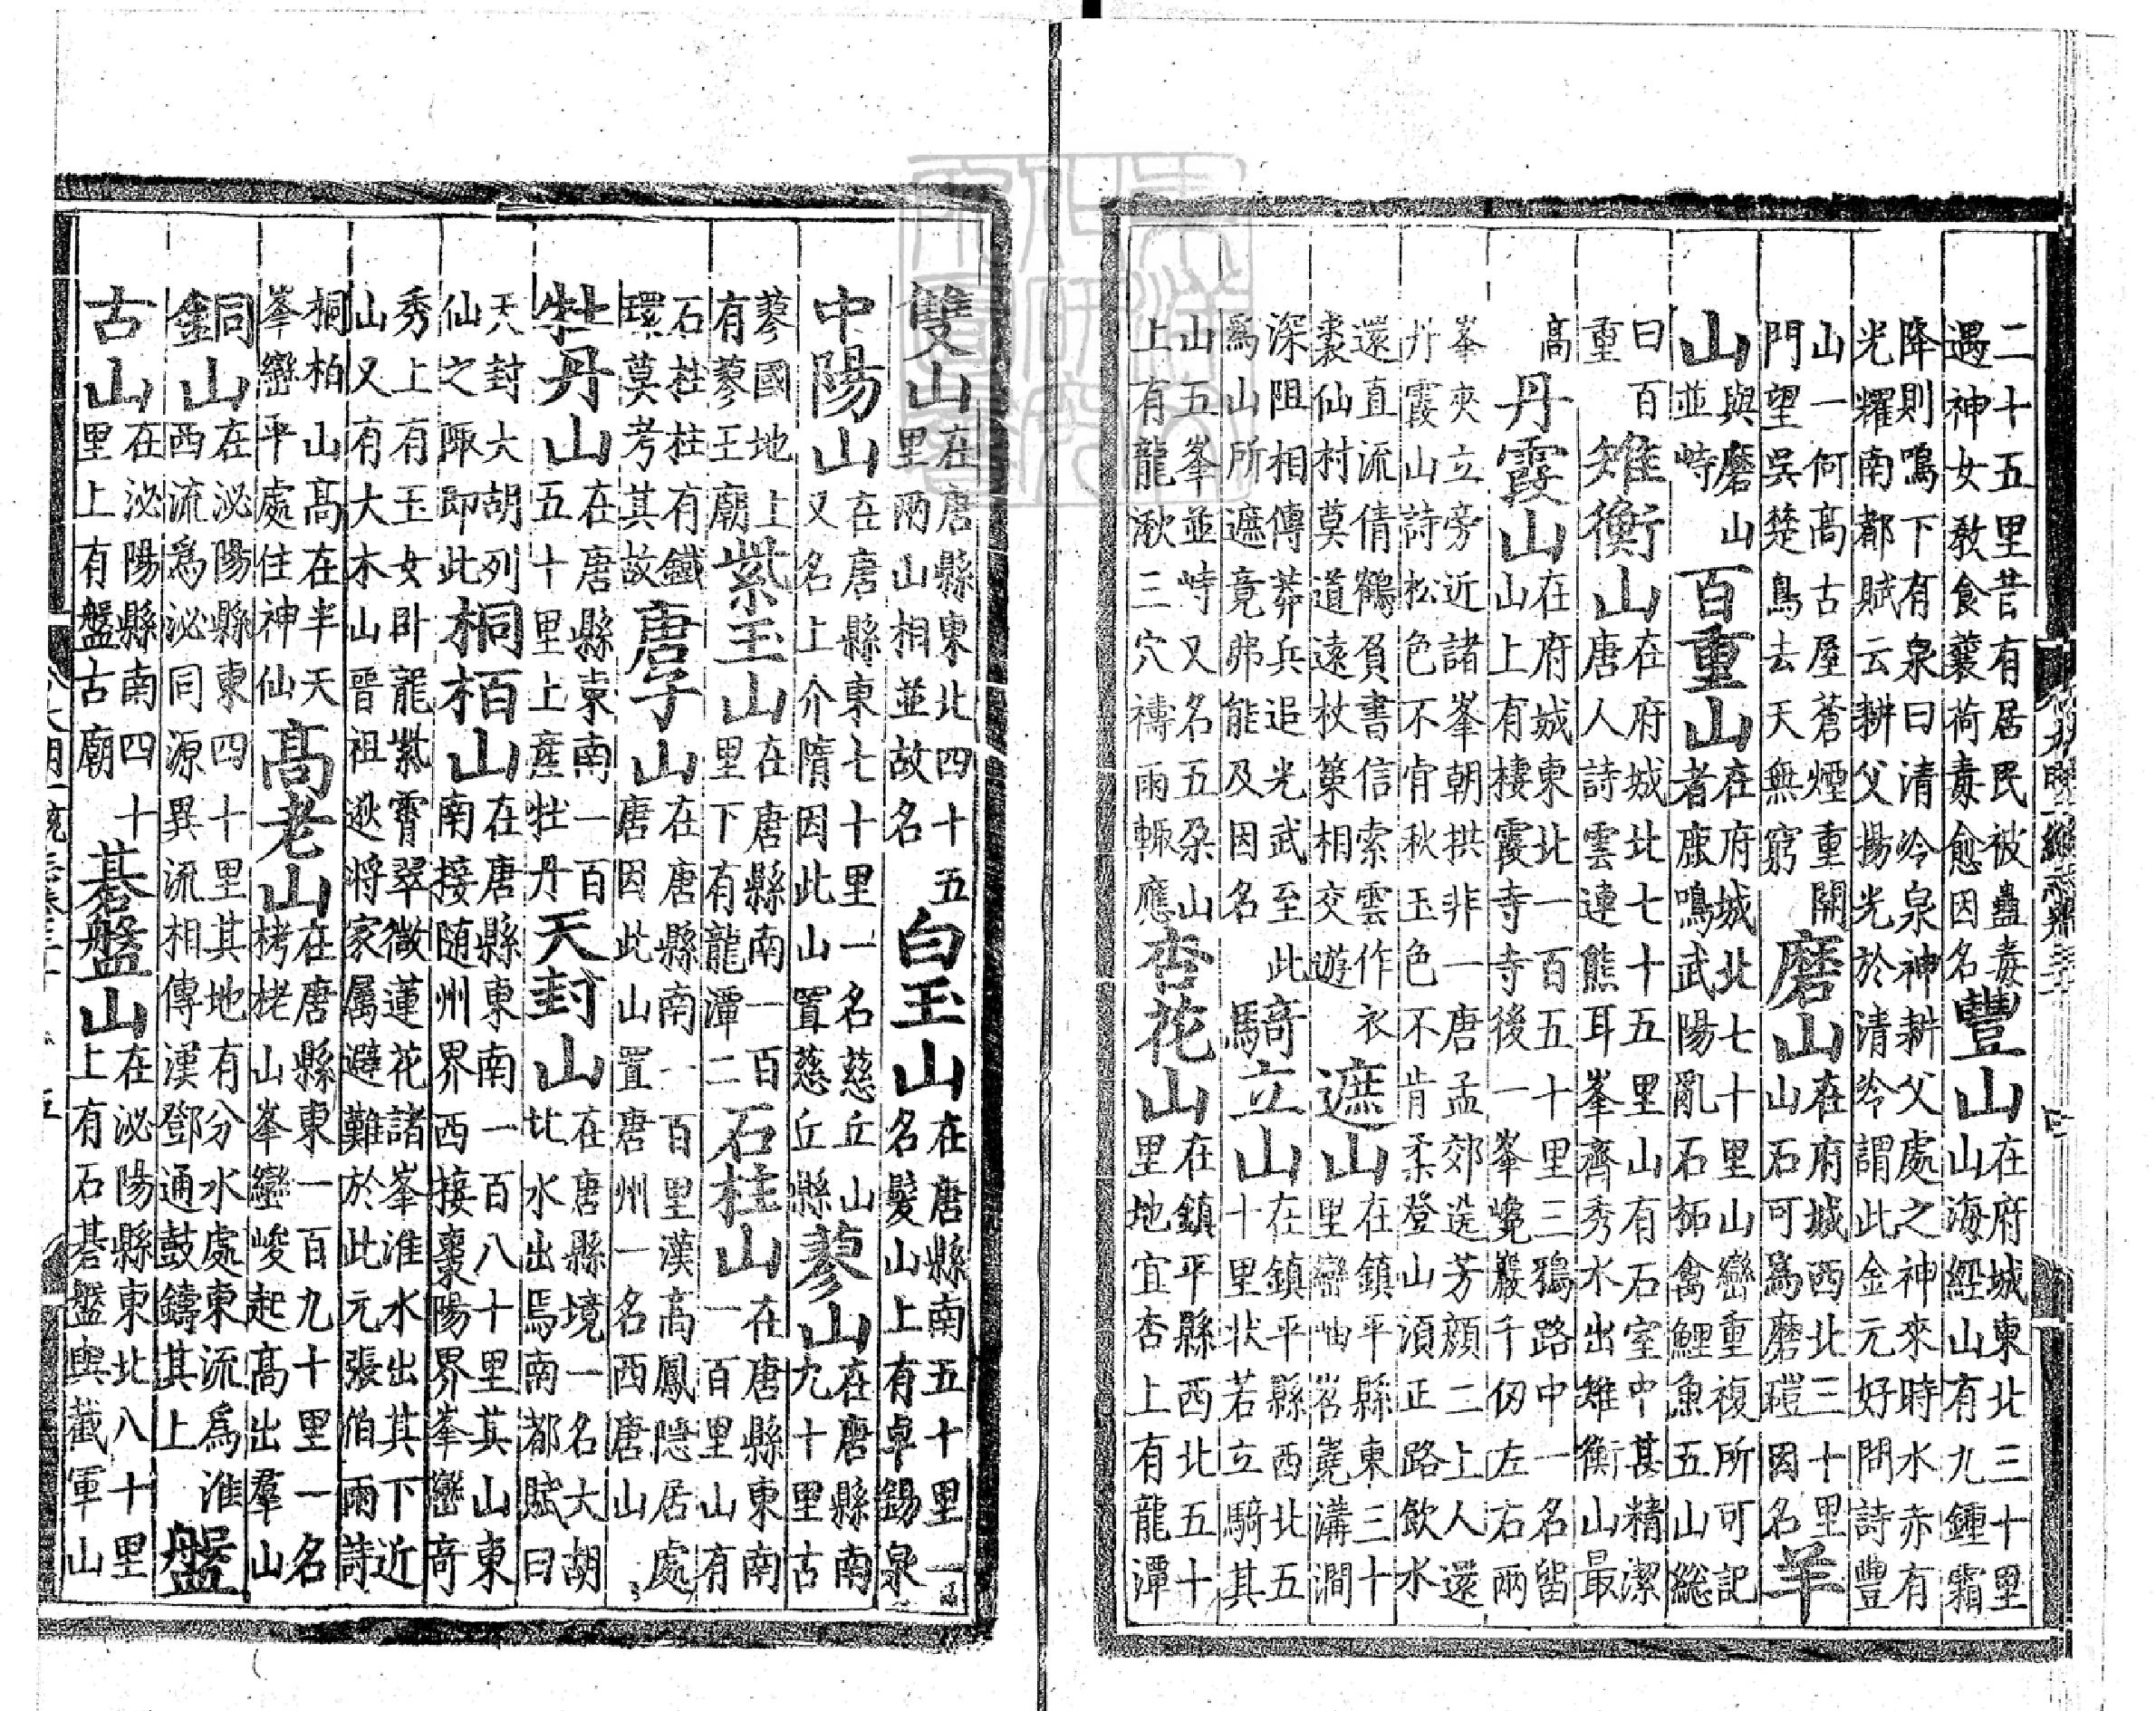 二十五里昔有居民被蠱毒
遇神女敎食蘘荷毒愈因名
豐山
在府城東北三十里
山海經山有九鍾霜
降則鳴下有泉曰清泠泉神耕父處之神來時水赤有
光耀南都賦云耕父揚光於清泠謂此金元好問詩豐
山一何高古屋蒼煙重關
門望吳楚鳥去天無窮
磨山
在府城西北三十里
山石可爲磨磑因名
羊
山
與磨山
並峙
百重山
在府城北七十里山巒重複所可記
者鹿鳴武陽亂石柘禽鯉魚五山緫
曰百
重
雉衡山
在府城北七十五里山有石室中甚精潔
唐人詩雲連熊耳峯齊秀水出雉衡山最
高
丹霞山
在府城東北一百五十里三鵶路中一名留
山上有棲霞寺寺後一峯巉巖千仞左右兩
峯夾立旁近諸峯朝拱非一唐孟郊送芳顔二上人還
丹霞山詩松色不肯秋玉色不肯柔登山湏正路飲水
還直流倩鶴負書信索雲作衣
裘仙村莫道遠杖策相交遊
遮山
在鎮平縣東三十
里巒岫岧嶤溝澗
深阻相傳莽兵追光武至此
爲山所遮竟弗能及因名
騎立山
在鎮平縣西北五
十里狀若立騎其
山五峯並峙又名五朶山
上有龍湫三穴禱雨輙應
杏花山
在鎮平縣西北五十
里地宜杏上有龍潭
雙山
在唐縣東北四十五
里兩山相並故名
白玉山
在唐縣南五十里一
名髮山上有卓錫泉
中陽山
在唐縣東七十里一名慈丘山
又名上介隋因此山置慈丘縣
蓼山
在唐縣南
九十里古
蓼國地上
有蓼王廟
紫玉山
在唐縣南一百
里下有龍潭二
石柱山
在唐縣東南
一百里山有
石柱柱有鐵
環莫考其故
唐子山
在唐縣南一百里漢高鳳隱居處
唐因此山置唐州一名西唐山
牡丹山
在唐縣東南一百
五十里上產牡丹
天封山
在唐縣境一名大胡
比水出焉南都賦曰
天封大胡列
仙之陬卽此
桐栢山
在唐縣東南一百八十里其山東
南接随州界西接棗陽界峯巒奇
秀上有玉女卧龍紫霄翠微蓮花諸峯淮水出其下近
山又有大木山晉祖逖將家屬避難於此元張伯雨詩
桐柏山高在半天
峯巒平處住神仙
高老山
在唐縣東一百九十里一名
栲栳山峯巒峻起高出羣山
銅山
在泌陽縣東四十里其地有分水處東流爲淮
西流爲泌同源異流相傳漢鄧通鼓鑄其上
盤
古山
在泌陽縣南四十
里上有盤古廟
碁盤山
在泌陽縣東北八十里
上有石碁盤與截軍山